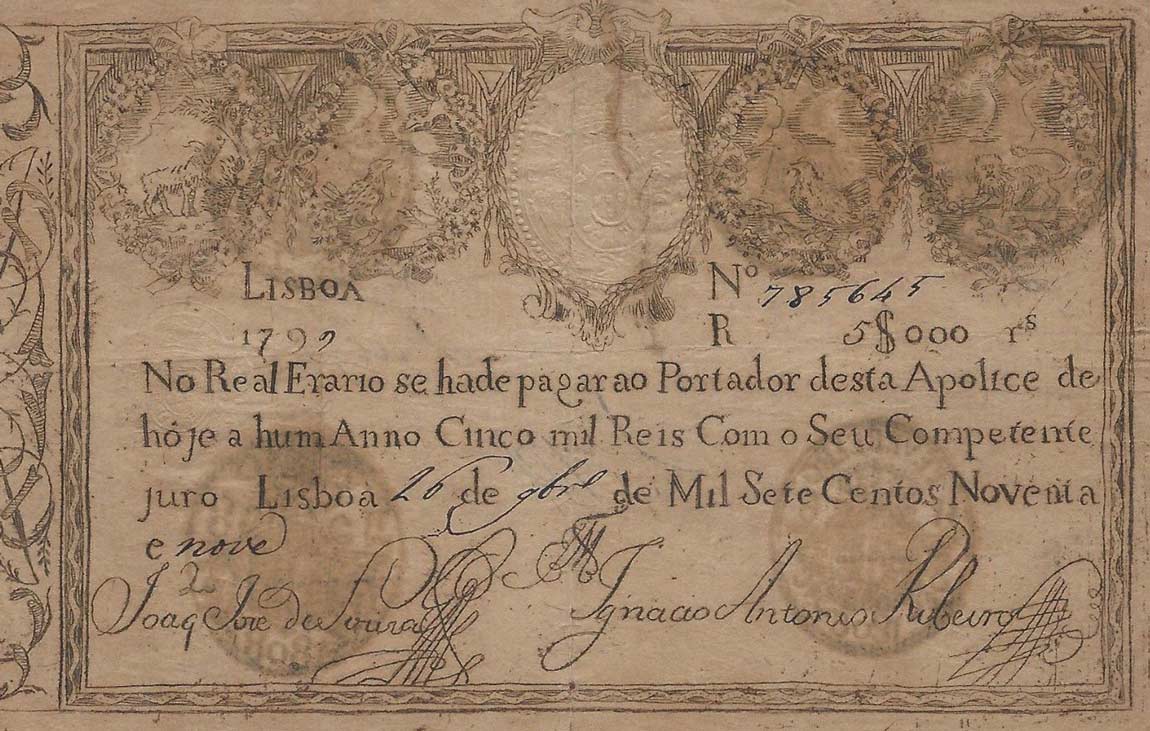 LISBOA
Nº 785645
1799
R 5$000 rs
No Real Erario se hade pagar ao Portador desta Apolice de
hóje a hum Anno Cinco mil Reis Com o Seu Competente
juro Lisboa 26 de 9bro de Mil Sete Centos Noventa
e nove
Joaq Jose de Souza
Ignacio Antonio Ribeiro